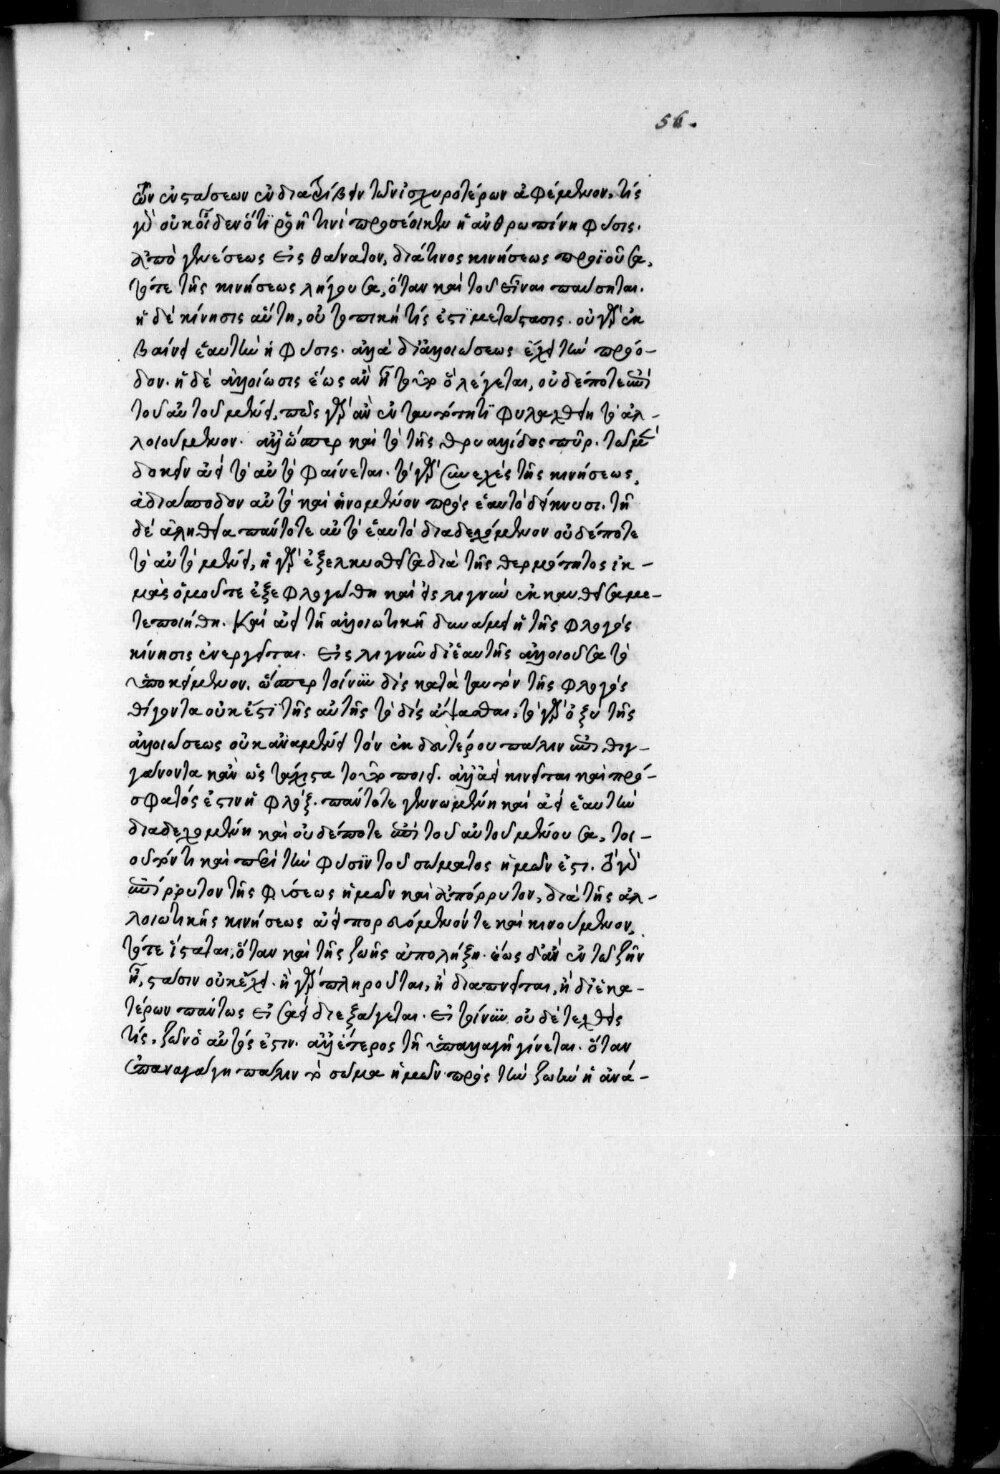 56.
τῶν ἐνστάσεων ἐνδιατρίβειν τῶν ἰσχυροτέρων ἀφέμενον. τίς
γὰρ οὐκ οἶδεν ὅτι ῥοῇ τινὶ προσέοικεν ἡ ἀνθρωπίνη φύσις.
ἀπὸ γενέσεως εἰς θάνατον, διά τινος κινήσεως προϊοῦσα,
τότε τῆς κινήσεως λήγουσα, ὅταν καὶ τοῦ εἶναι παύσηται.
ἡ δὲ κίνησις αὕτη, οὐ τοπική τίς ἐστι μετάστασις. οὐ γὰρ ἐκ
βαίνει ἑαυτὴν ἡ φύσις. ἀλλὰ δι' ἀλλοιώσεως ἔχει τὴν πρόο-
δον. ἡ δὲ ἀλλοίωσις ἕως ἂν ᾖ τοῦτο ὃ λέγεται, οὐδέποτε ἐπὶ
τοῦ αὐτοῦ μένει. πῶς γὰρ ἂν ἐν ταυτότητι φυλαχθείη τὸ ἀλ-
λοιούμενον. ἀλλ' ὥσπερ καὶ τὸ τῆς θρυαλλίδος πῦρ. τῷ μὲν
δοκεῖν ἀεὶ τὸ αὐτὸ φαίνεται. τὸ γὰρ συνεχὲς τῆς κινήσεως,
ἀδιάσπαστον αὐτὸ καὶ ἡνωμένον πρὸς ἑαυτὸ δείκνυσι. τῇ
δὲ ἀληθείᾳ πάντοτε αὐτὸ ἑαυτὸ διαδεχόμενον οὐδέποτε
τὸ αὐτὸ μένει, ἡ γὰρ ἐξελκυσθεῖσα διὰ τῆς θερμότητος ἰκ-
μὰς ὁμοῦ τε ἐξεφλογώθη καὶ εἰς λιγνὺν ἐκκαυθεῖσα με-
τεποιήθη. Καὶ ἀεὶ τῇ ἀλλοιωτικῇ δυνάμει ἡ τῆς φλογὸς
κίνησις ἐνεργεῖται. εἰς λιγνὺν δι' ἑαυτῆς ἀλλοιοῦσα τὸ
ὑποκείμενον. ὥσπερ τοίνυν δὶς κατὰ ταυτὸν τῆς φλογὸς
θίγοντα οὐκ ἔστι τῆς αὐτῆς τὸ δὶς ἅψασθαι. τὸ γὰρ ὀξὺ τῆς
ἀλλοιώσεως οὐκ ἀναμένει τὸν ἐκ δευτέρου πάλιν ἐπιθιγ-
γάνοντα κἂν ὡς τάχιστα τοῦτο ποιῇ. ἀλλ' ἀεὶ κινεῖται καὶ πρό-
σφατός ἐστιν ἡ φλὸξ. πάντοτε γεννωμένη καὶ ἀεὶ ἑαυτὴν
διαδεχομένη καὶ οὐδέποτε ἐπὶ τοῦ αὐτοῦ μένουσα, τοι-
οῦτόν τι καὶ περὶ τὴν φύσιν τοῦ σώματος ἡμῶν ἐστι. τὸ γὰρ
ἐπίρρυτον τῆς φύσεως ἡμῶν καὶ ἀπόρρυτον, διὰ τῆς ἀλ-
λοιωτικῆς κινήσεως ἀεὶ πορευόμενόν τε καὶ κινούμενον,
τότε ἵσταται, ὅταν καὶ τῆς ζωῆς ἀπολήξῃ. ἕως δ' ἂν ἐν τῷ ζῆν
ᾖ, στάσιν οὐκ ἔχει. ἢ γὰρ πληροῦται, ἢ διαπνεῖται, ἢ δι' ἑκα-
τέρων πάντως εἰσαεὶ διεξάγεται. εἰ τοίνυν οὐδὲ τῷ χθές
τίς, ζῶν ὁ αὐτός ἐστιν. ἀλλ' ἕτερος τῇ ὑπαλλαγῇ γίνεται. ὅταν
ἐπαναγάγῃ πάλιν τὸ σῶμα ἡμῶν πρὸς τὴν ζωὴν ἡ ἀνά-